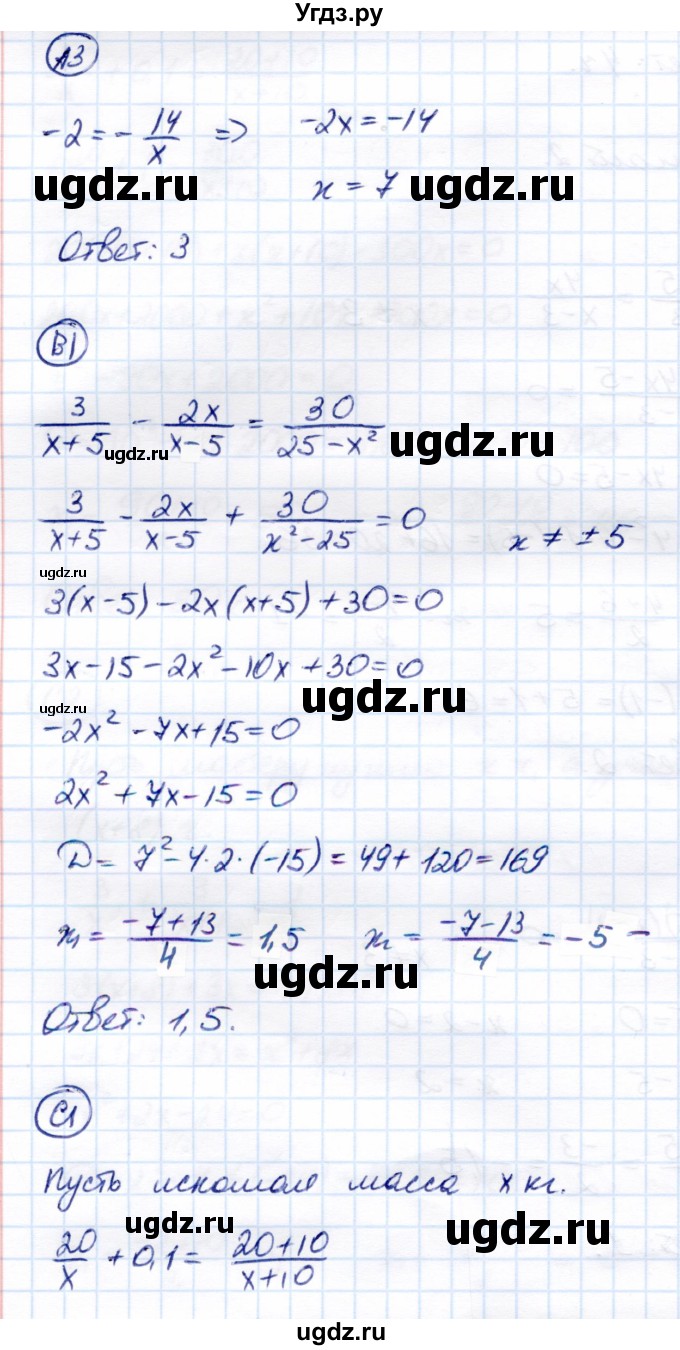 Угдз.ру
А3
-2 = - 14/x => -2x = -14
ugdz.ru x = 7 ugdz.ru
Ответ: 3
В1
3/(x+5) - 2x/(x-5) = 30/(25-x²)
ugdz.ru ugdz.ru
3/(x+5) - 2x/(x-5) + 30/(x²-25) = 0 x ≠ ±5
ugdz.ru
3(x-5) - 2x(x+5) + 30 = 0
3x - 15 - 2x² - 10x + 30 = 0
ugdz.ru ugdz.ru
-2x² - 7x + 15 = 0
2x² + 7x - 15 = 0
D = 7² - 4·2·(-15) = 49 + 120 = 169
x₁ = (-7+13)/4 = 1,5 x₂ = (-7-13)/4 = -5 -
ugdz.ru
Ответ: 1,5.
С1
Пусть искомая масса x кг.
ugdz.ru ugdz.ru
20/x + 0,1 = (20+10)/(x+10)
ugdz.ru